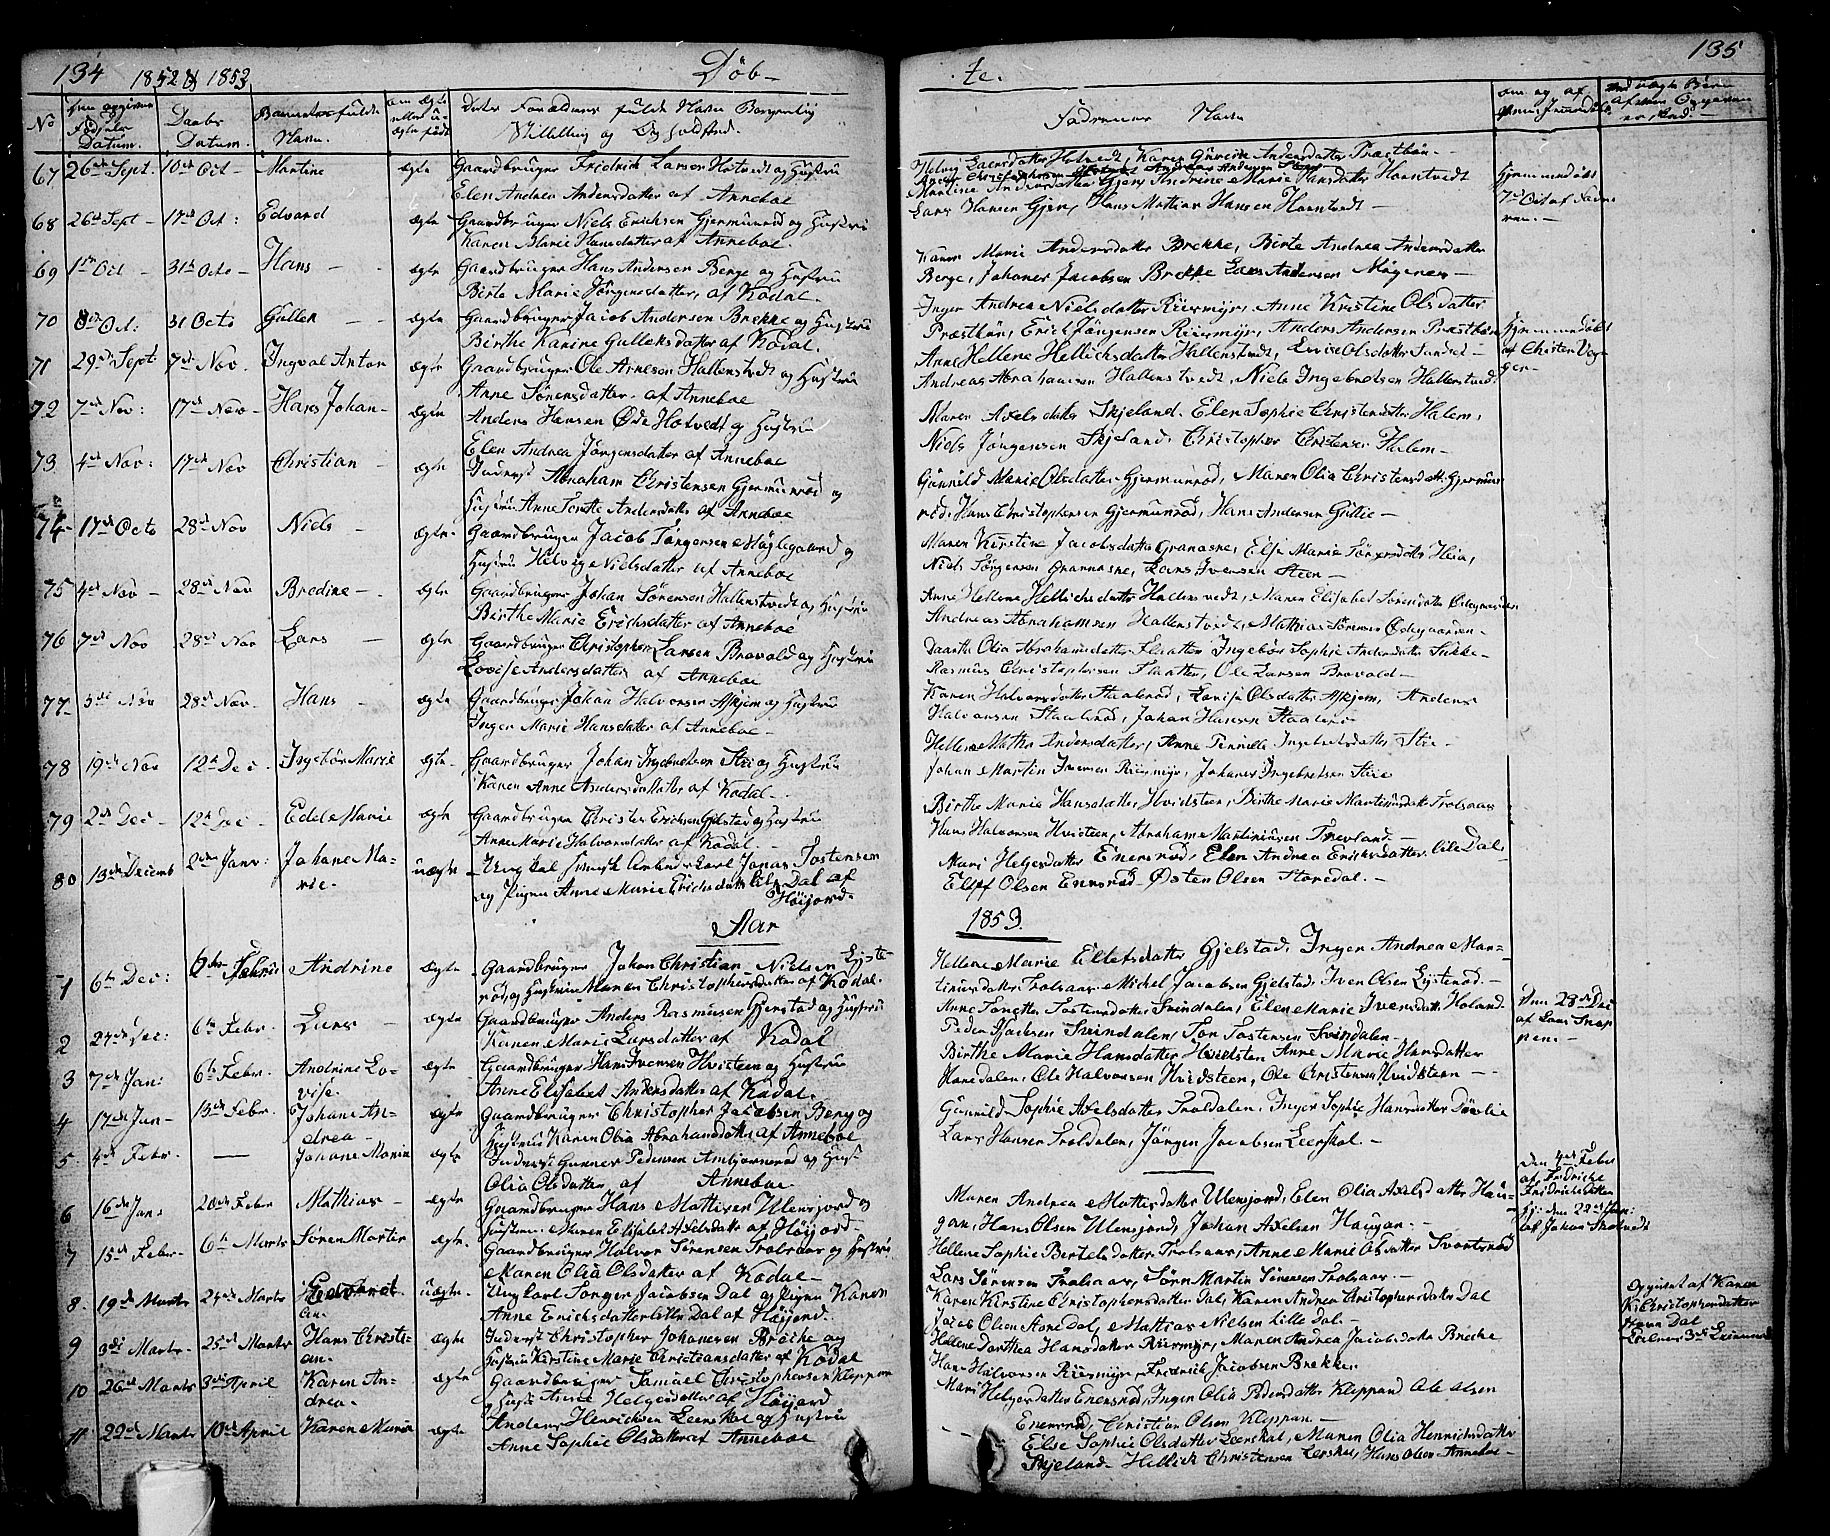 134 1852 & 1853 Döb-
No Den opgivne Födsels Datum. Daabs Datum. Barnets fulde Navn. om Ægte eller uægte født Dets Forældres fulde Navn Borgerlig Stilling og Opholdsted.
67 26de Sept. 10de Oct - Martine ægte Gaardbruger Fredrick Larsen Hotvedt og Hustru
Elen Andrea Andersdatter af Anneboe
68 26de Sept - 17de Oct: Edvard ægte Gaardbruger Niels Erichsen Gjermunröd og Hustru
Karen Marie Hansdatter af Anneboe.
69 1ste Oct - 31te Octo - Hans - ægte Gaardbruger Hans Andersen Berge og Hustru
Birte Marie Jörgensdatter, af Kodal.
70 8de Oct: 31 Octo Gullek - ægte Gaardbruger Jacob Andersen Brekke og Hustru
Birthe Karine Galleksdatter af Kodal.
71 29de Sept 7de Nov. Ingval Anton ægte Gaardbruger Ole Arnesen Hallenstvedt og Hustru
Anne Sörensdatter af Anneboe
72 7de Nov: 17de Nov - Hans Johan - ægte Anders Hansen Öde Hotvedt og Hustru
Elen Andrea Jörgensdatter af Anneboe
73 4de Nov: 17de Nov Christian - ægte Inderst Abraham Christensen Gjermunröd og
Hustru Anne Tonette Andersdatter af Anneboe
74 17de Octo 28de Nov Niels - ægte Gaardbruger Jacob Törgersen Möglegaard og
Hustru Helvig Nielsdatter af Anneboe
75 4de Nov - 28de Nov Bredine - ægte Gaardbruger Johan Sörensen Hallenstvedt og Hustru
Birthe Marie Erichsdatter af Anneboe
76 7de Nov 28de Nov Lars - ægte Gaardbruger Christopher Larsen Bravald og Hustru
Lovise Andersdatter af Anneboe
77 3die Nov 28de Nov. Hans - ægte Gaardbruger Johan Halvorsen Askjem og Hustru
Inger Marie Hansdatter af Anneboe -
78 19de Nov 12te Dec. Ingebör Marie ægte Gaardbruger Johan Ingebretsen Stie og Hustru
Karen Anne Andersdatter af Kodal -
79 2de Dec - 12te Dec - Edel Marie ægte Gaardbruger Christen Ericksen Gjelstad og Hustru
Anne Marie Halvorsdatter af Kodal. -
80 13de Decemb 2den Janv: Johane Ma- uægte - Ungkal Svensk Arbeider Carl Jonas Tostensen
rie. og Pigen Anne Marie Erichsdatter Lile Dal af
Höijord.
Aar
1 6te Dec: 6te Febru Andrine ægte Gaardbruger Johan Christian Nielsen Lyste-
röd, og Hustru Maren Christophersdatter af Kodal.
2 27de Dec: 6te Febr. Lars - ægte Gaardbruger Anders Rasmusen Gjerstad og Hustru
Karen Marie Larsdatter af Kodal
3 7de Jan: 6te Febr. Andrine Lo- ægte Gaardbruger Hans Iversen Hvisteen og Hustru
vise. Anne Elisabet Andersdatter af Kodal.
4 17de Jan - 13de Febr. Johane An- ægte Gaardbruger Christopher Jacobsen Berg og
drea - Hustru Karen Olia Abrahamsdatter af Anneboe
5 4de Febr. — Johane Marie ægte Inderst Gunner Pedersen Ambjørnsröd og Hust
Olia Olsdatter af Anneboe
6 16de Jan: 20de Febr Mathias - ægte Gaardbruger Hans Mathisen Ulensjord og
Hustru Maren Elisabet Axelsdatter af Höijord -
7 15de Febr - 6te Marts Sören Martin ægte. Gaardbruger Halvor Sörensen Trolsaas og Hustru
Maren Olia Olsdatter af Kodal -
8. 19de Marts 24de Marts Edvard uægte. Ungkarl Torger Jacobsen Dal og Pigen Karen
Anne Erichsdatter Lille Dal af Höijord.
9 3die Marts 25de Marts Hans Christi- ægte Inderst Christopher Johanesen Bröche og
an. Hustru Kirstine Marie Christiansdatter af Kodal
10 26de Marts 3die April Karen An- ægte Gaardbruger Samuel Christophersen Kleppan
drea. og Hust Anne Helgesdatter af Höijord
11 22de Marts 10de April Karen Maria ægte Anders Henricksen Leerskal og Hustru
Anne Sophie Olsdatter af Anneboe
te. 135
Faderenes Navn om og af hvem
Helvig Larsdatter Hotvedt, Karen Gurine Andersdatter Præstbön -
Martine Andersdatter Gjerz Andrine Marie Hansdatter Horntvedt Hjemmedöbt
Lars Hansen Gjerz, Hans Mathias Hansen Horntvedt - 7de Oct af
Karen Marie Andersdatter Brekke, Birte Andrea Andersdatter
Berge, Johanes Jacobsen Brekke Lars Andersen Mögenes -
Inger Andrea Nielsdatter Riismyr, Anne Kristine Olsdatter
Præstbön, Erick Jörgensen Riismyr, Anders Andersen Præstbön Hjemmedöbt
Anne Hellene Hellichsdatter Hallenstvedt, Lovise Olsdatter Sundset - af Christen Vog-
Andreas Abrahamsen Hallenstvedt, Niels Ingebretsen Hallenstvedt. ger -
Maren Axelsdatter Skjeland. Elen Sophie Christensdatter Halem,
Niels Jörgensen Skjeland. Christopher Christensen Halem -
Gunnild Marie Olsdatter Gjermunröd, Maren Olia Christensdatt: Gjermun
röd. Hans Christophersen Gjermunröd, Hans Andersen Gillie -
Maren Kirstine Jacobsdatter Granasne, Else Marie Sörensdatter Heia,
Niels Jörgensen Granasne, Lars Iversen Steen -
Anne Hellene Hellichsdatter Hallenstvedt, Maren Elisabet Sörensdatter Ödegaarden
Andreas Abrahamsen Hallenstvedt, Mathias Sörensen Ödegaarden -
Daarthe Olia Abrahamsdatter Flaatten Ingebör Sophie Andersdatter Sukke -
Rasmus Christophersen Flaatten, Ole Larsen Bravald -
Karen Halvorsdatter Staalerod, Lovise Olsdatter Askjem, Anders
Halvorsen Staalerod, Johan Hansen Staalerod
Hellene Mathea Andersdatter, Anne Pernille Ingebretsdatter Stie -
Johan Martin Iversen Riismyr, Johanes Ingebretsen Stie
Birthe Marie Hansdatter Hvidsteen, Birthe Marie Martinusdatter Trolsaas
Hans Halvorsen Hvisteen, Abraham Martiniusen Trevland. -
Mari Helgesdatter Enersröd, Elen Andrea Ericksdatter Lile Dal,
Ellef Olsen Enersröd - Östen Olsen Storedal. -
1853.
Hellene Marie Ellefsdatter Gjelstad. Inger Andrea Mar-
tinusdatter Trolsaas. Michel Jacobsen Gjelstad. Iven Olsen Lysteröd. -
Anne Tonette Tostensdatter Svindalen, Elen Marie Iversdatter Holand Den 28de Dec
Peder Isacksen Svindalen, Tor Tostensen Svindalen - af Lars Snap
Birthe Marie Hansdatter Hvidsten Anne Marie Hansdatter pen. -
Horsdalen, Ole Halvorsen Hvidsteen, Ole Christensen Hvidsteen -
Gunnild Sophie Axelsdatter Troldalen, Inger Sophie Hansdatter Dövlie
Lars Hansen Troldalen, Jörgen Jacobsen Leerskal. -
Den 4de Febr
af Fredricke
Maren Andrea Mathisdatter Ulensjord, Elen Olia Axelsdatter Hau- Fridricksdatter
gan, Hans Olsen Ulensjord, Johan Axelsen Haugan. - Hj: den 22de Jan:
Hellene Sophie Bertelsdatter Trolsaas, Anne Marie Olsdatter Svartsröd af Johan
Lars Sörensen Trolsaas, Sörn Martin Sörensen Trolsaas. -
Karen Kirstine Christophersdatter Dal, Karen Andrea Christophersdatter Dal Opgivet af Karen
Jacob Olsen Store Dal, Mathias Nielsen Lille Dal. K. Christophersdatter
Hellene Dorthea Hansdatter Riismyr, Maren Andrea Jacobsdatter Bröche
Hans Halvorsen Riismyr, Fredrick Jacobsen Brekke
Mari Helgesdatter Enersröd, Inger Olia Pedersdatter Kleppand Ole Olsen
Enersröd, Christian Olsen Kleppan. -
Else Sophie Olsdatter Leerskal, Maren Olia Henricksdatter
Skjeland - Hellick Christensen Leerskal, Hans Olsen Anneboe -